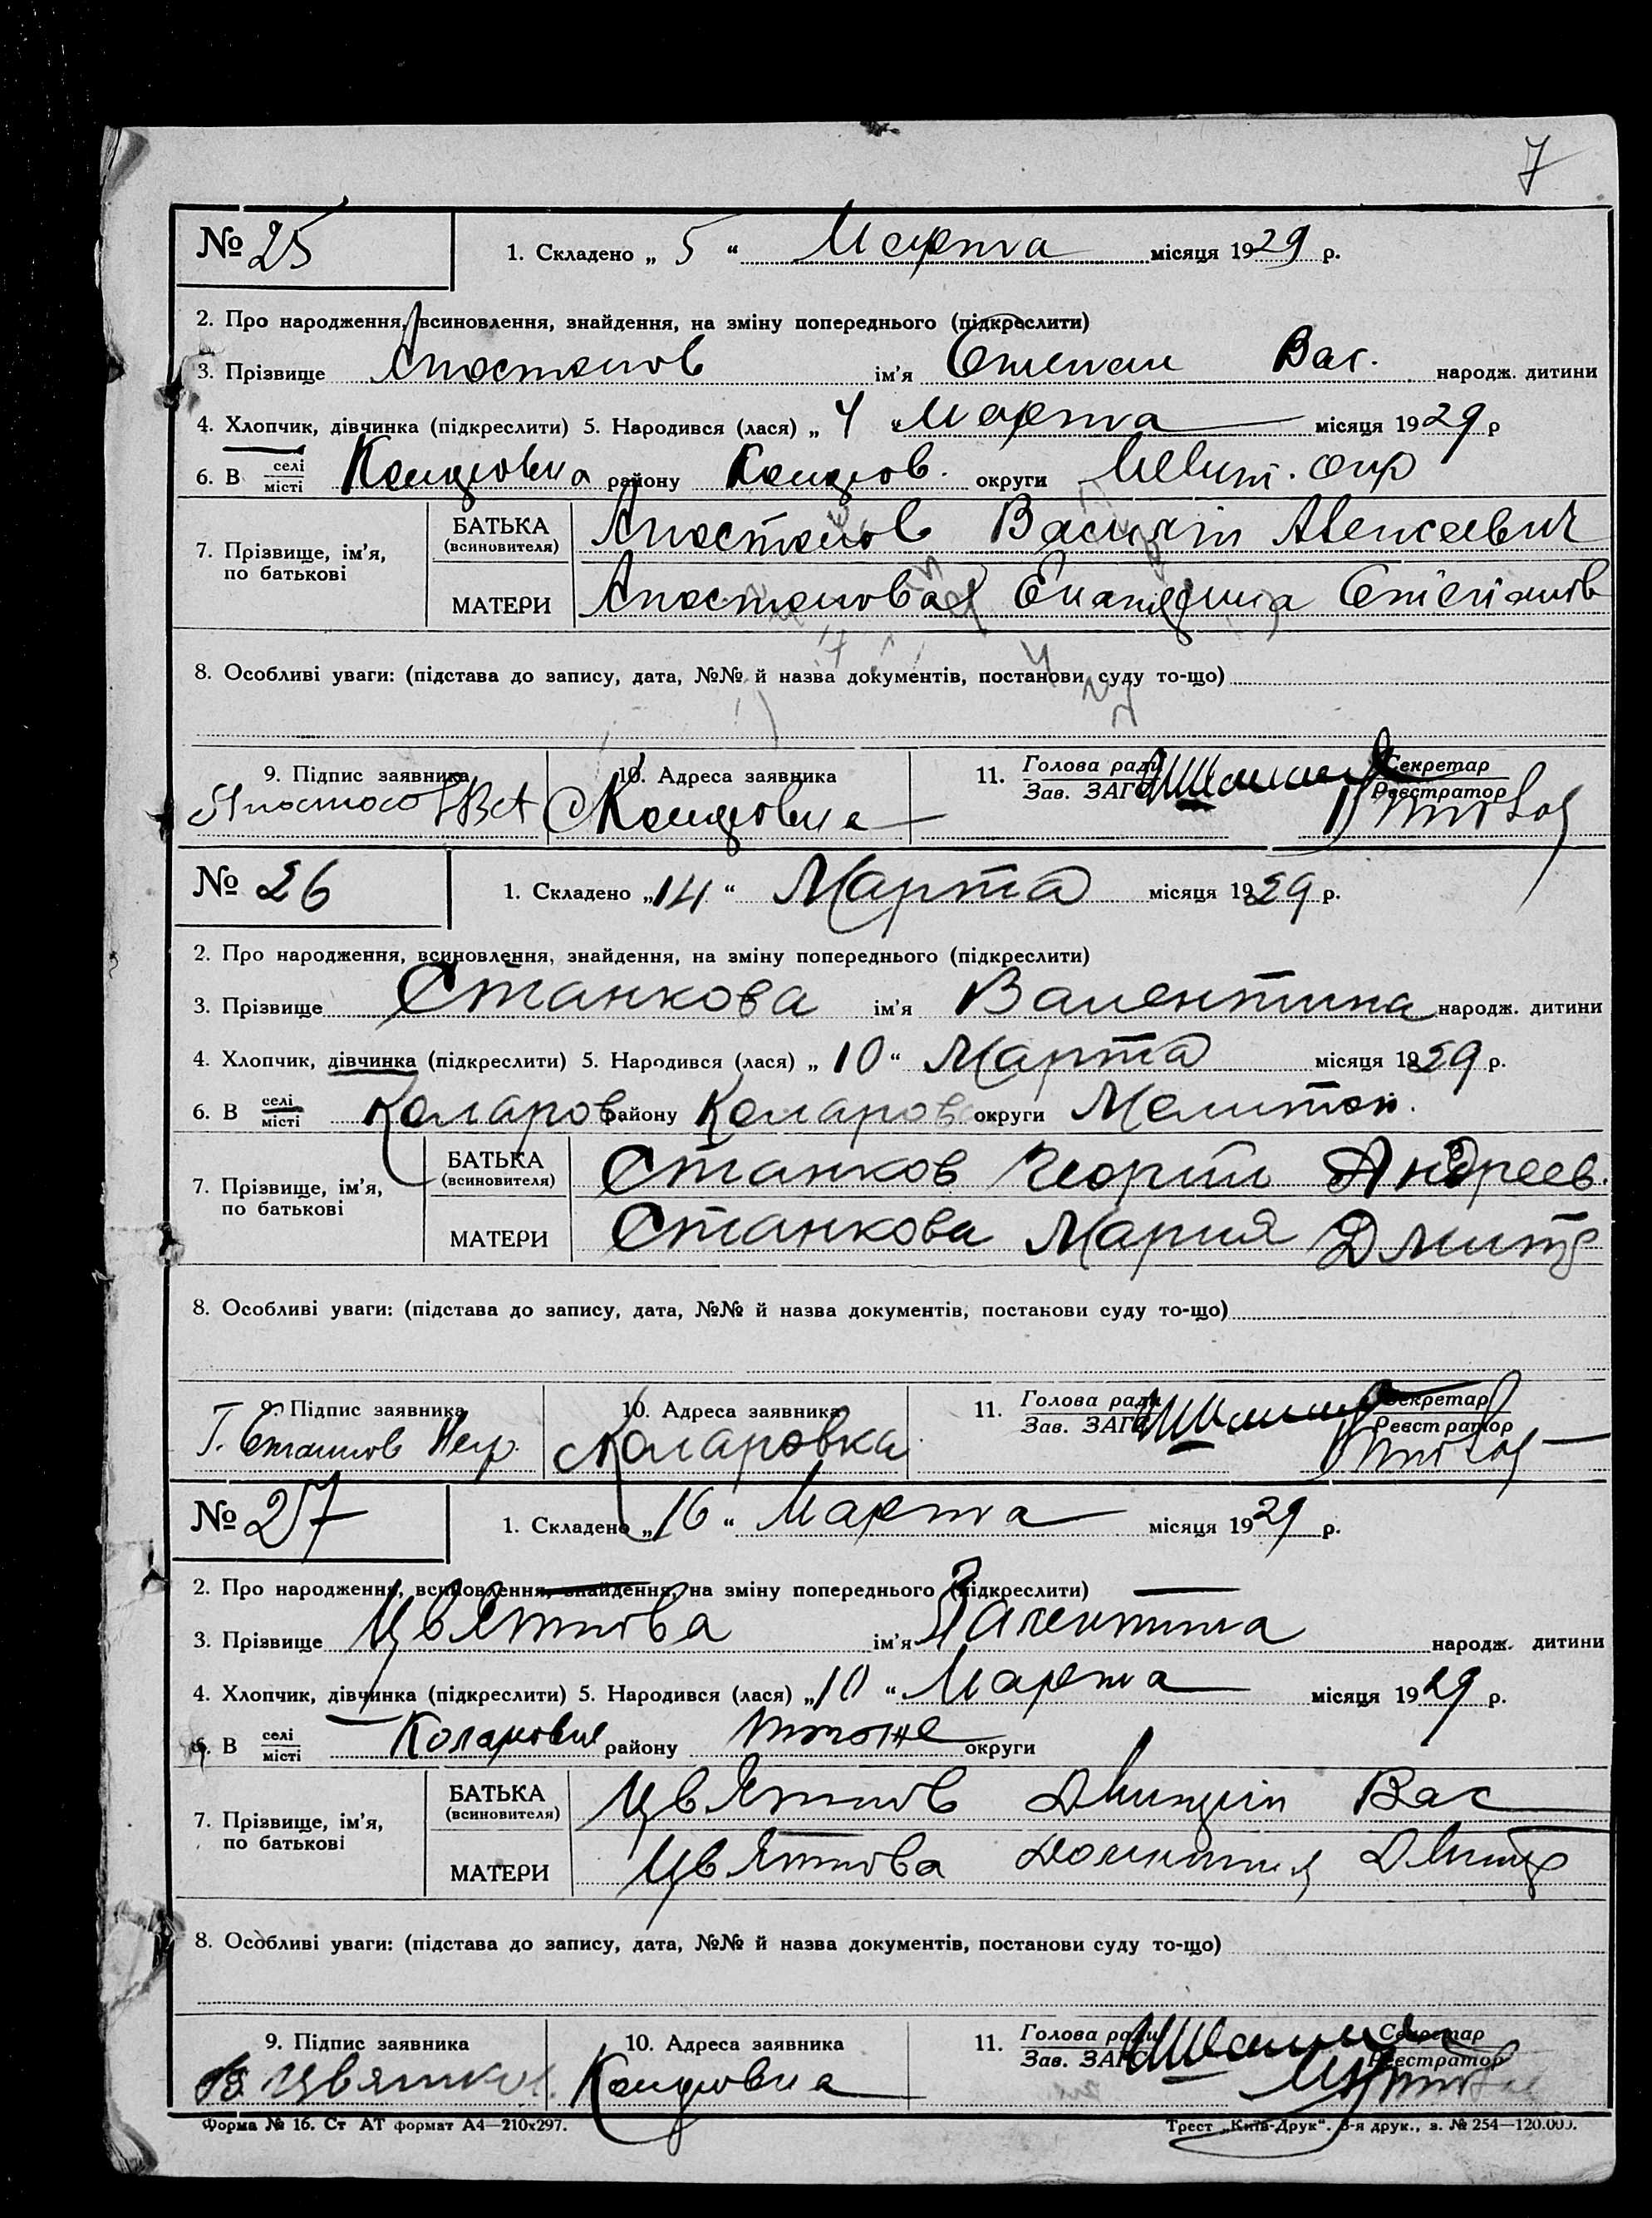 7
№ 25 1. Складено „ 5 “ Марта місяця 1929 р.
2. Про народження, всиновлення, знайдення, на зміну попереднього (підкреслити)
3. Прізвище Апостолов ім’я Степан Вас. народж. дитини
4. Хлопчик, дівчинка (підкреслити) 5. Народився (лася) „ 4 “ Марта місяця 1929 р
6. В селі/місті району округи Мелит. окр
7. Прізвище, ім’я, по батькові
БАТЬКА (всиновителя) Апостолов Василий Алексеевич
МАТЕРИ Апостолова
8. Особливі уваги: (підстава до запису, дата, №№ й назва документів, постанови суду то-що)
9. Підпис заявника 10. Адреса заявника 11. Голова ради Секретар
Зав. ЗАГС Реєстратор
№ 26 1. Складено „14“ Марта місяця 1929 р.
2. Про народження, всиновлення, знайдення, на зміну попереднього (підкреслити)
3. Прізвище Станкова ім’я Валентина народж. дитини
4. Хлопчик, дівчинка (підкреслити) 5. Народився (лася) „ 10 “ Марта місяця 1929 р.
6. В селі/місті Коларов району Коларов округи Мелитоп.
7. Прізвище, ім’я, по батькові
БАТЬКА (всиновителя) Станков Георгий Андреев.
МАТЕРИ Станкова Мария Дмитр
8. Особливі уваги: (підстава до запису, дата, №№ й назва документів, постанови суду то-що)
9. Підпис заявника 10. Адреса заявника 11. Голова ради Секретар
Зав. ЗАГС Реєстратор
Г. Станков Коларовка
№ 27 1. Складено „ 16 “ Марта місяця 1929 р.
2. Про народження, всиновлення, знайдення, на зміну попереднього (підкреслити)
3. Прізвище Цвяткова ім’я Валентина народж. дитини
4. Хлопчик, дівчинка (підкреслити) 5. Народився (лася) „ 10 “ Марта місяця 1929 р.
6. В селі/місті Коларовка району тоже округи
7. Прізвище, ім’я, по батькові
БАТЬКА (всиновителя) Цвятков Дмитрий Вас
МАТЕРИ Цвяткова Домникия Дмитр
8. Особливі уваги: (підстава до запису, дата, №№ й назва документів, постанови суду то-що)
9. Підпис заявника 10. Адреса заявника 11. Голова ради Секретар
Зав. ЗАГС Реєстратор
Цвятков
Форма № 16. Ст АТ формат А4—210х297. Трест „Київ-Друк“. 3-я друк., з. № 254—120.000.